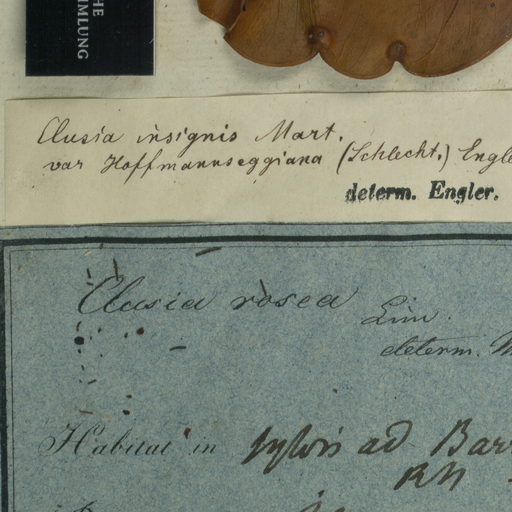 HE
MMLUNG
Clusia insignis Mart.
var Hoffmannseggiana (Schlecht.) Engle
determ. Engler.
Clusia rosea Lin.
determ. M
Habitat in sylvis ad Bar